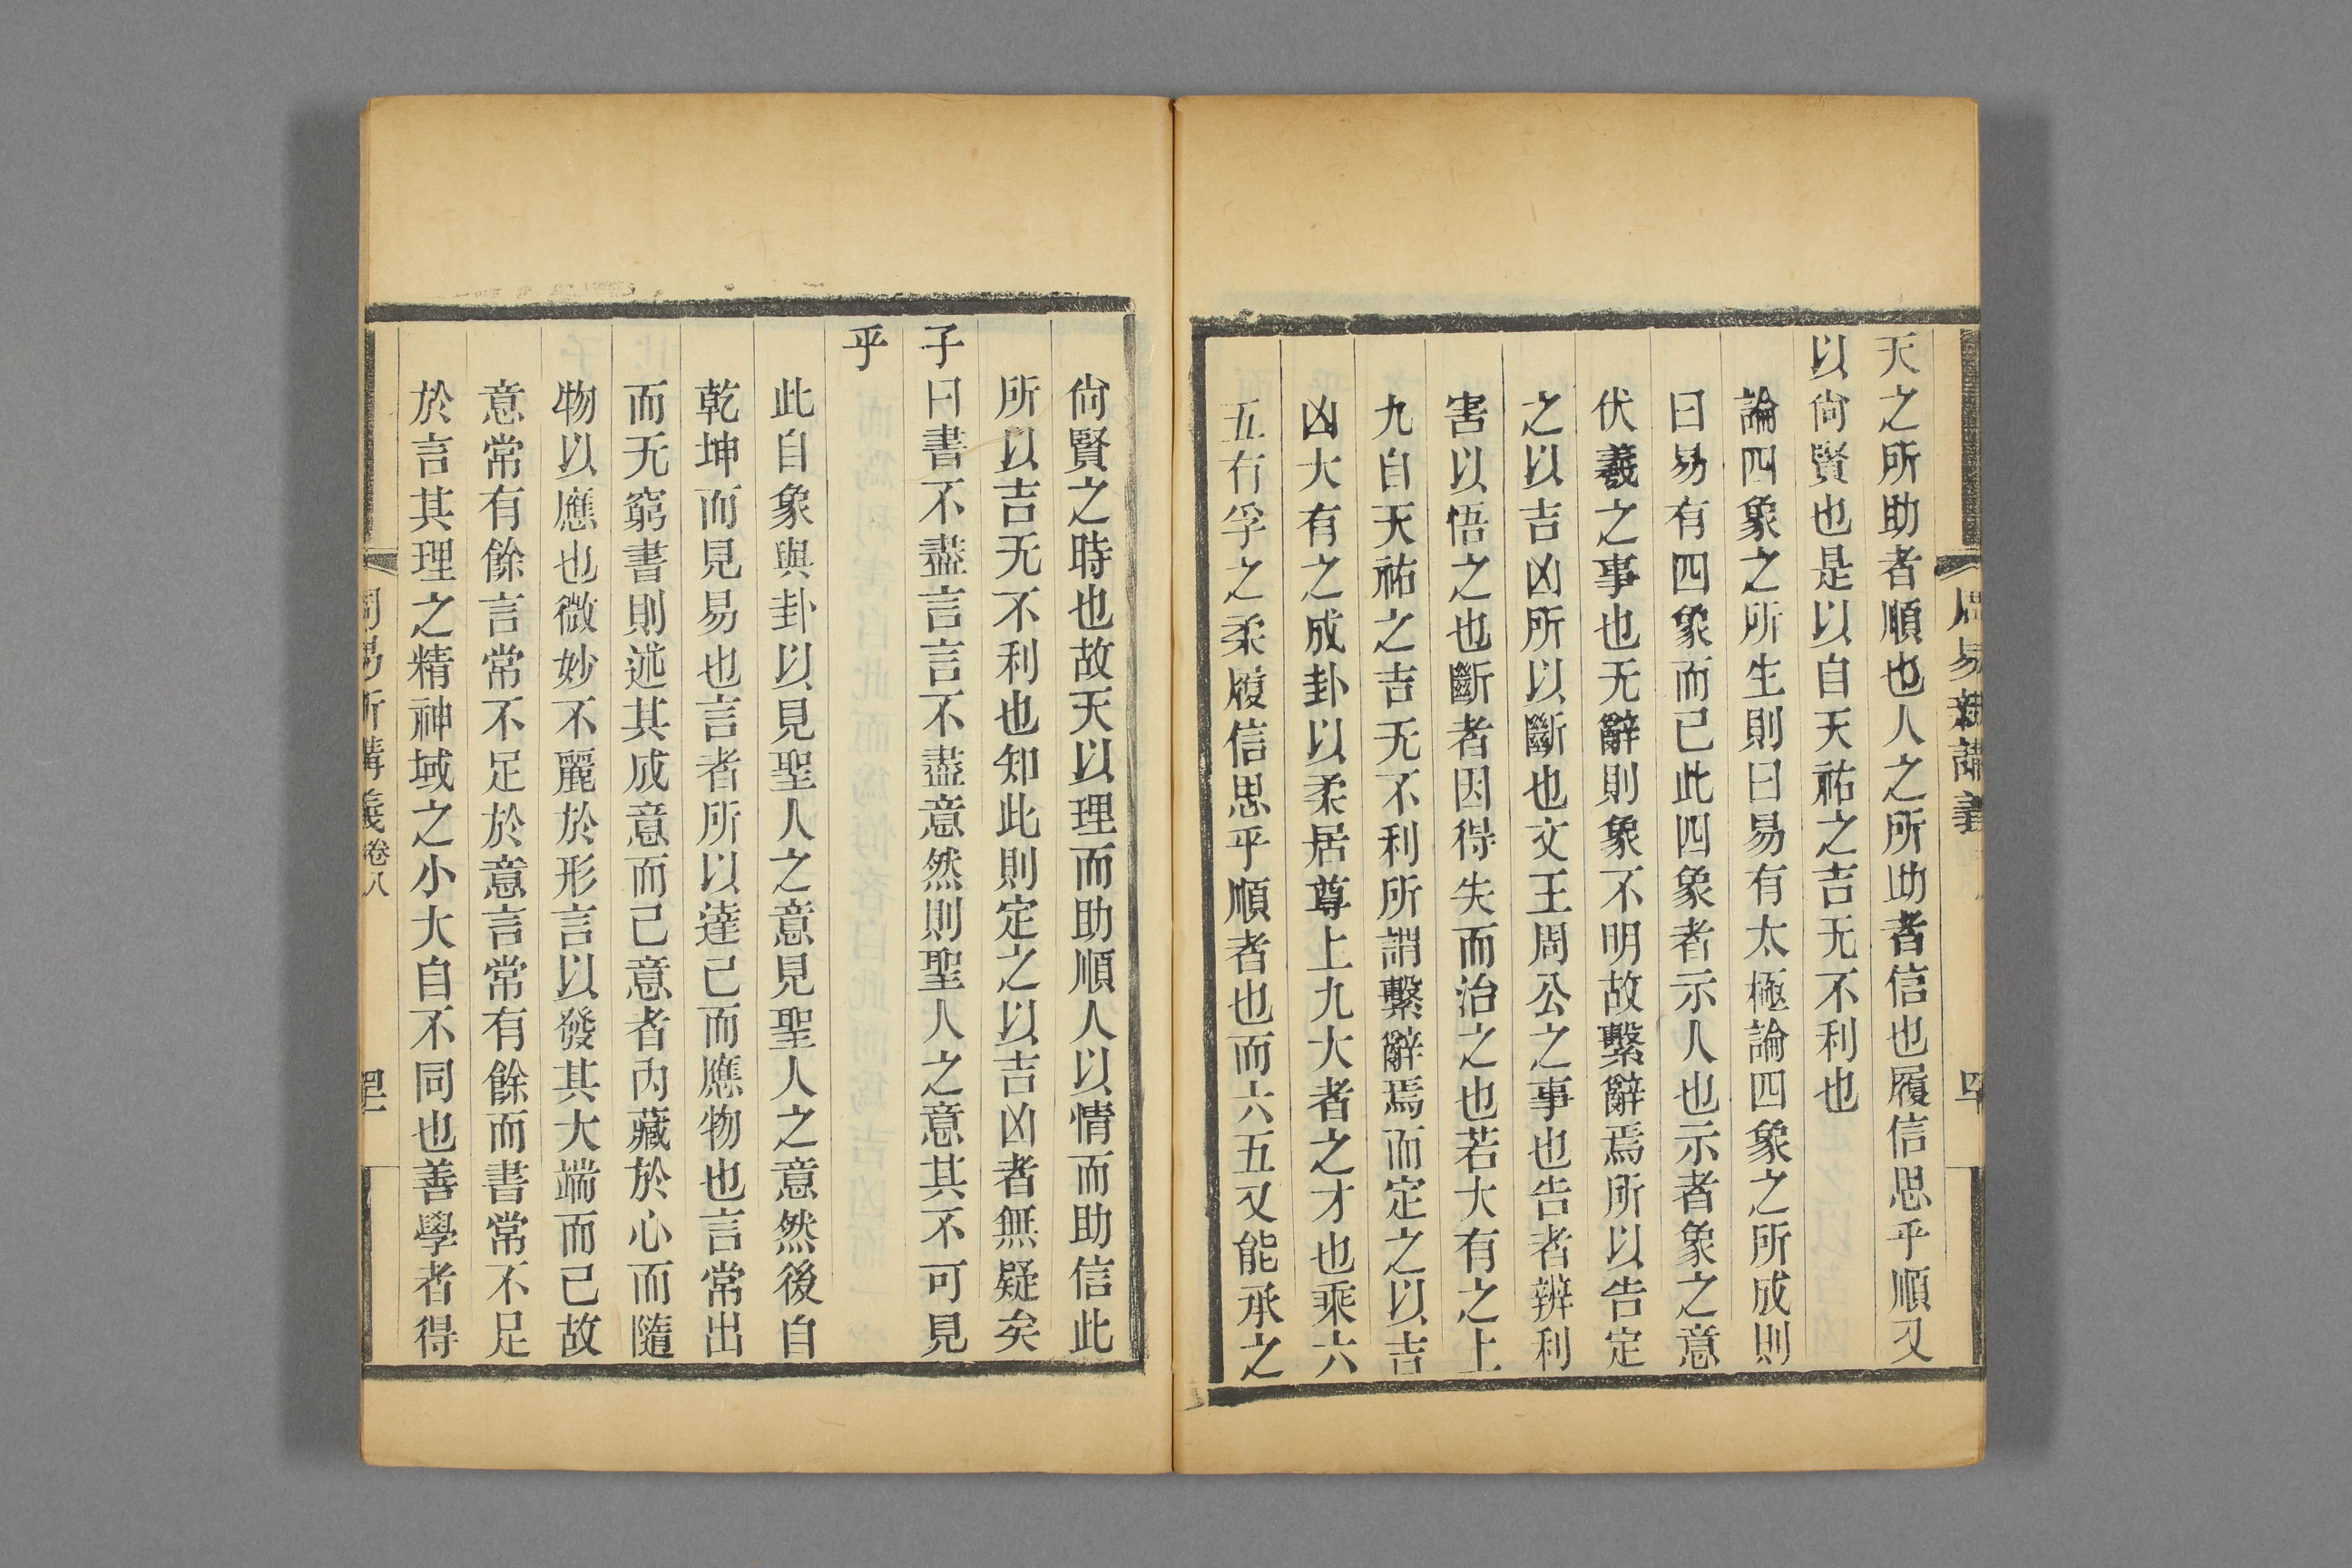 周易新講義
天之所助者順也人之所助者信也履信思乎順又
以尙賢也是以自天祐之吉无不利也
論四象之所生則曰易有太極論四象之所成則
曰易有四象而已此四象者示人也示者象之意
伏羲之事也无辭則象不明故繫辭焉所以告定
之以吉凶所以斷也文王周公之事也告者辨利
害以悟之也斷者因得失而治之也若大有之上
九自天祐之吉无不利所謂繫辭焉而定之以吉
凶大有之成卦以柔居尊上九大者之才也乘六
五有孚之柔履信思乎順者也而六五又能承之
尙賢之時也故天以理而助順人以情而助信此
所以吉无不利也知此則定之以吉凶者無疑矣
子曰書不盡言言不盡意然則聖人之意其不可見
乎
此自象與卦以見聖人之意見聖人之意然後自
乾坤而見易也言者所以達己而應物也言常出
而无窮書則述其成意而已意者內藏於心而隨
物以應也微妙不麗於形言以發其大端而已故
意常有餘言常不足於意言常有餘而書常不足
於言其理之精神域之小大自不同也善學者得
周易新講義卷八